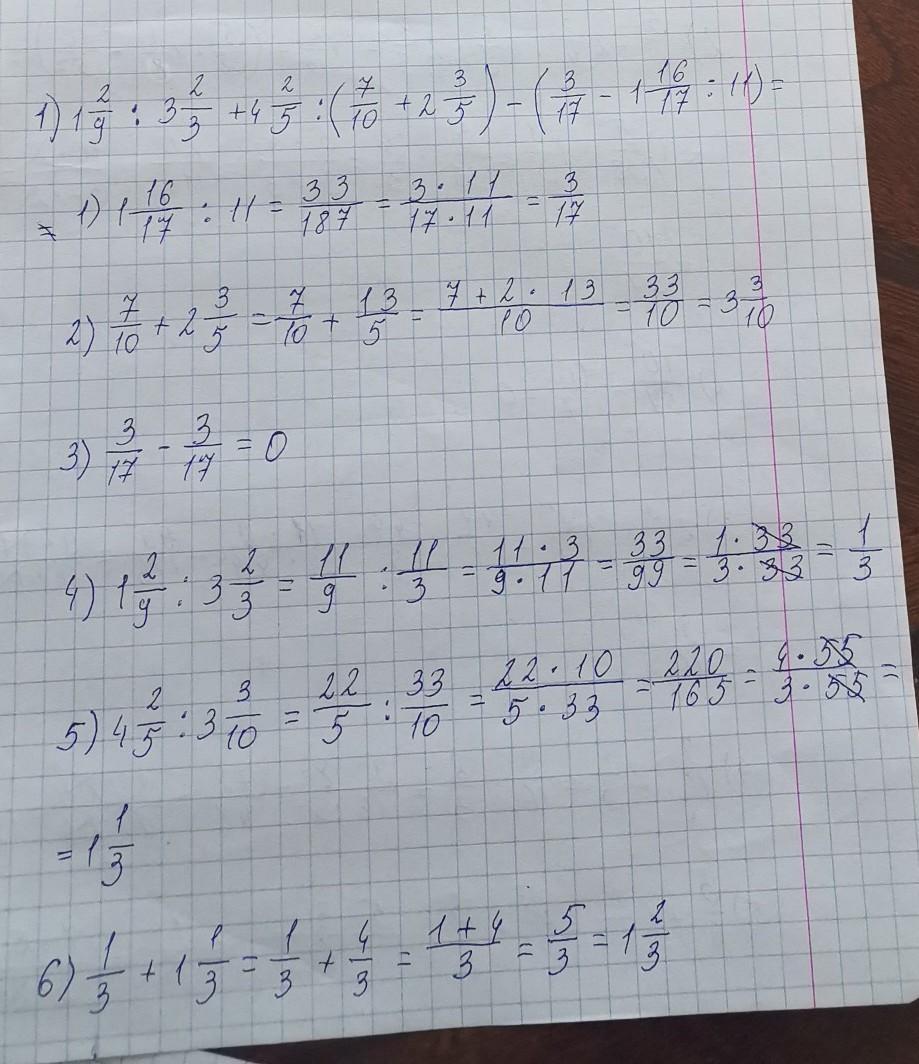 1) 1 2/9 : 3 2/3 + 4 2/5 : (7/10 + 2 3/5) - (3/17 - 1 16/17 : 11) =
= 1) 1 16/17 : 11 = 33/187 = 3·11/17·11 = 3/17
2) 7/10 + 2 3/5 = 7/10 + 13/5 = 7+2·13/10 = 33/10 = 3 3/10
3) 3/17 - 3/17 = 0
4) 1 2/9 : 3 2/3 = 11/9 : 11/3 = 11·3/9·11 = 33/99 = 1·33/3·33 = 1/3
5) 4 2/5 : 3 3/10 = 22/5 : 33/10 = 22·10/5·33 = 220/165 = 4·55/3·55 =
= 1 1/3
6) 1/3 + 1 1/3 = 1/3 + 4/3 = 1+4/3 = 5/3 = 1 2/3